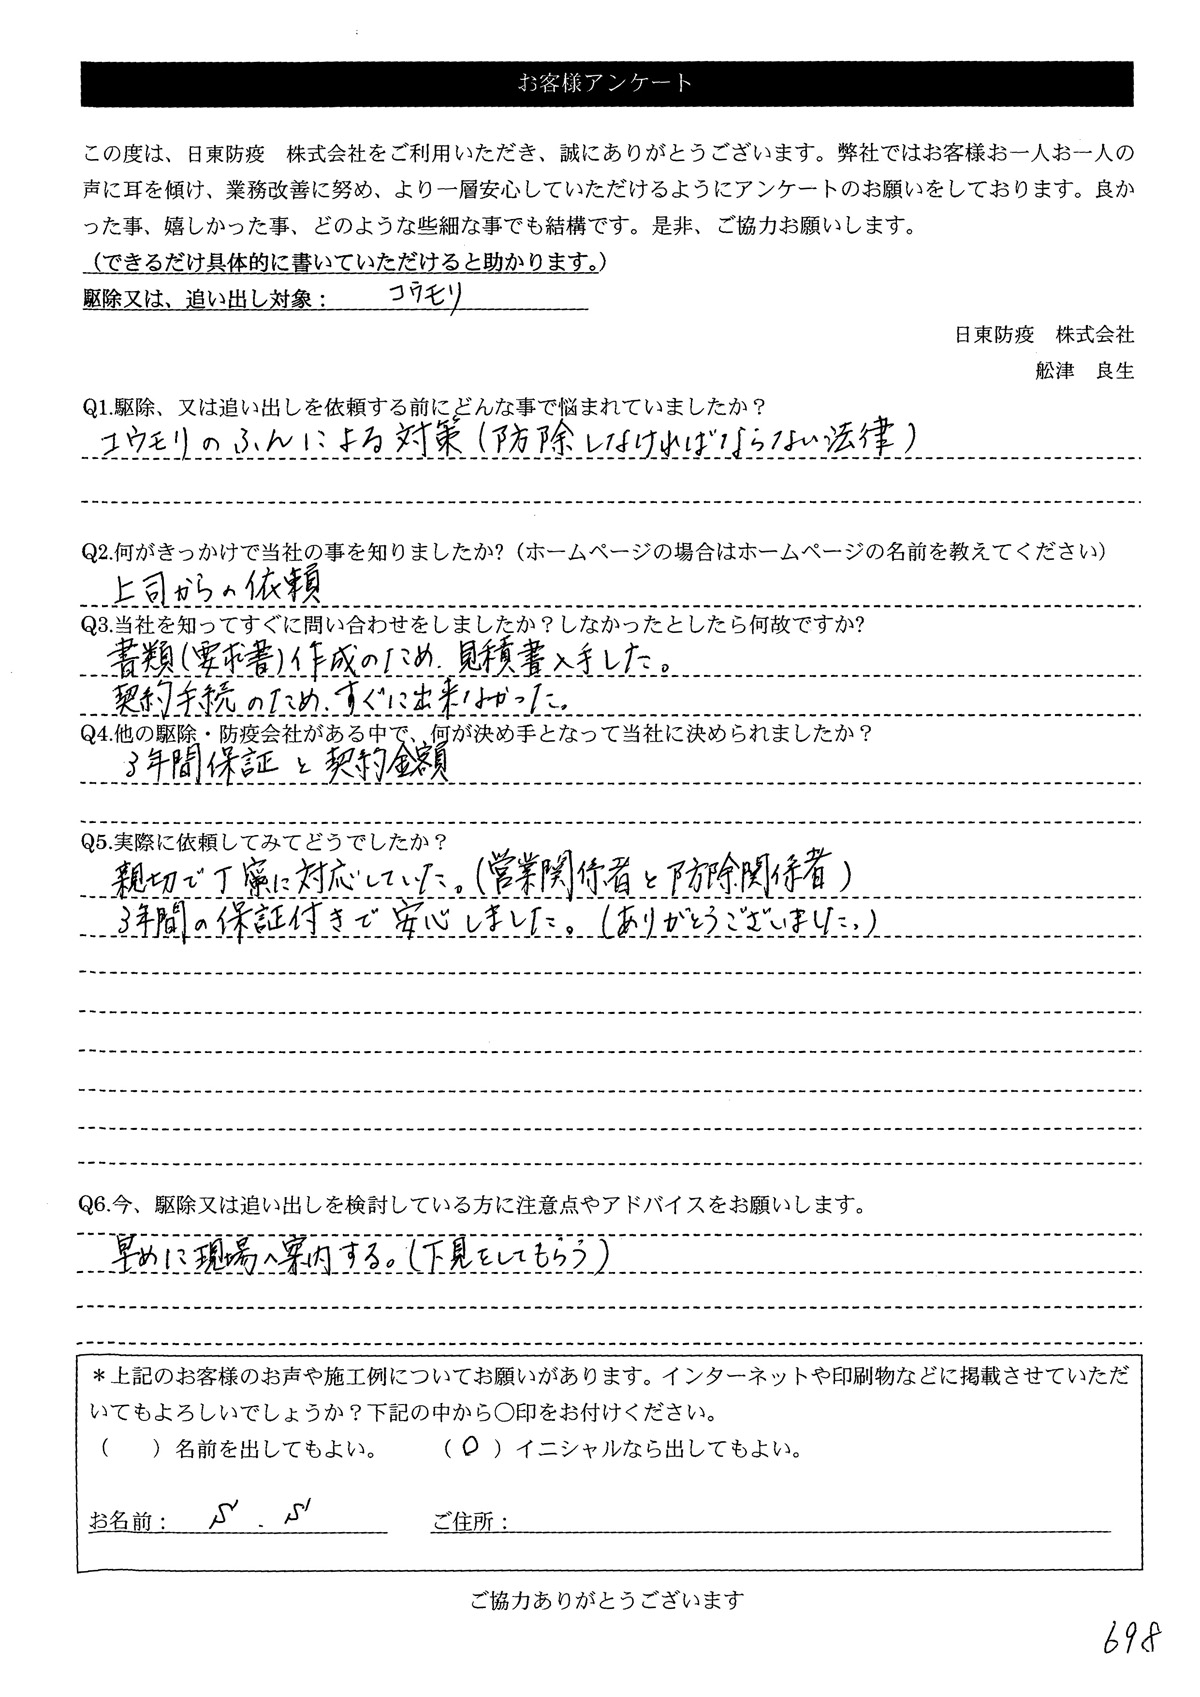 お客様アンケート
この度は、日東防疫　株式会社をご利用いただき、誠にありがとうございます。弊社ではお客様お一人お一人の
声に耳を傾け、業務改善に努め、より一層安心していただけるようにアンケートのお願いをしております。良か
った事、嬉しかった事、どのような些細な事でも結構です。是非、ご協力お願いします。
（できるだけ具体的に書いていただけると助かります。）
駆除又は、追い出し対象：　コウモリ
日東防疫　株式会社
舩津　良生
Q1.駆除、又は追い出しを依頼する前にどんな事で悩まれていましたか？
コウモリのふんによる対策（防除しなければならない法律）
Q2.何がきっかけで当社の事を知りましたか?（ホームページの場合はホームページの名前を教えてください）
上司からの依頼
Q3.当社を知ってすぐに問い合わせをしましたか？しなかったとしたら何故ですか?
書類（要求書）作成のため、見積書入手した。
契約手続のため、すぐに出来なかった。
Q4.他の駆除・防疫会社がある中で、何が決め手となって当社に決められましたか？
3年間保証と契約金額
Q5.実際に依頼してみてどうでしたか？
親切で丁寧に対応していた。（営業関係者と防除関係者）
3年間の保証付きで安心しました。（ありがとうございました。）
Q6.今、駆除又は追い出しを検討している方に注意点やアドバイスをお願いします。
早めに現場へ案内する。（下見をしてもらう）
＊上記のお客様のお声や施工例についてお願いがあります。インターネットや印刷物などに掲載させていただ
いてもよろしいでしょうか？下記の中から〇印をお付けください。
（　　）名前を出してもよい。　　（ 〇 ）イニシャルなら出してもよい。
お名前：　S . S　　ご住所：
ご協力ありがとうございます
698